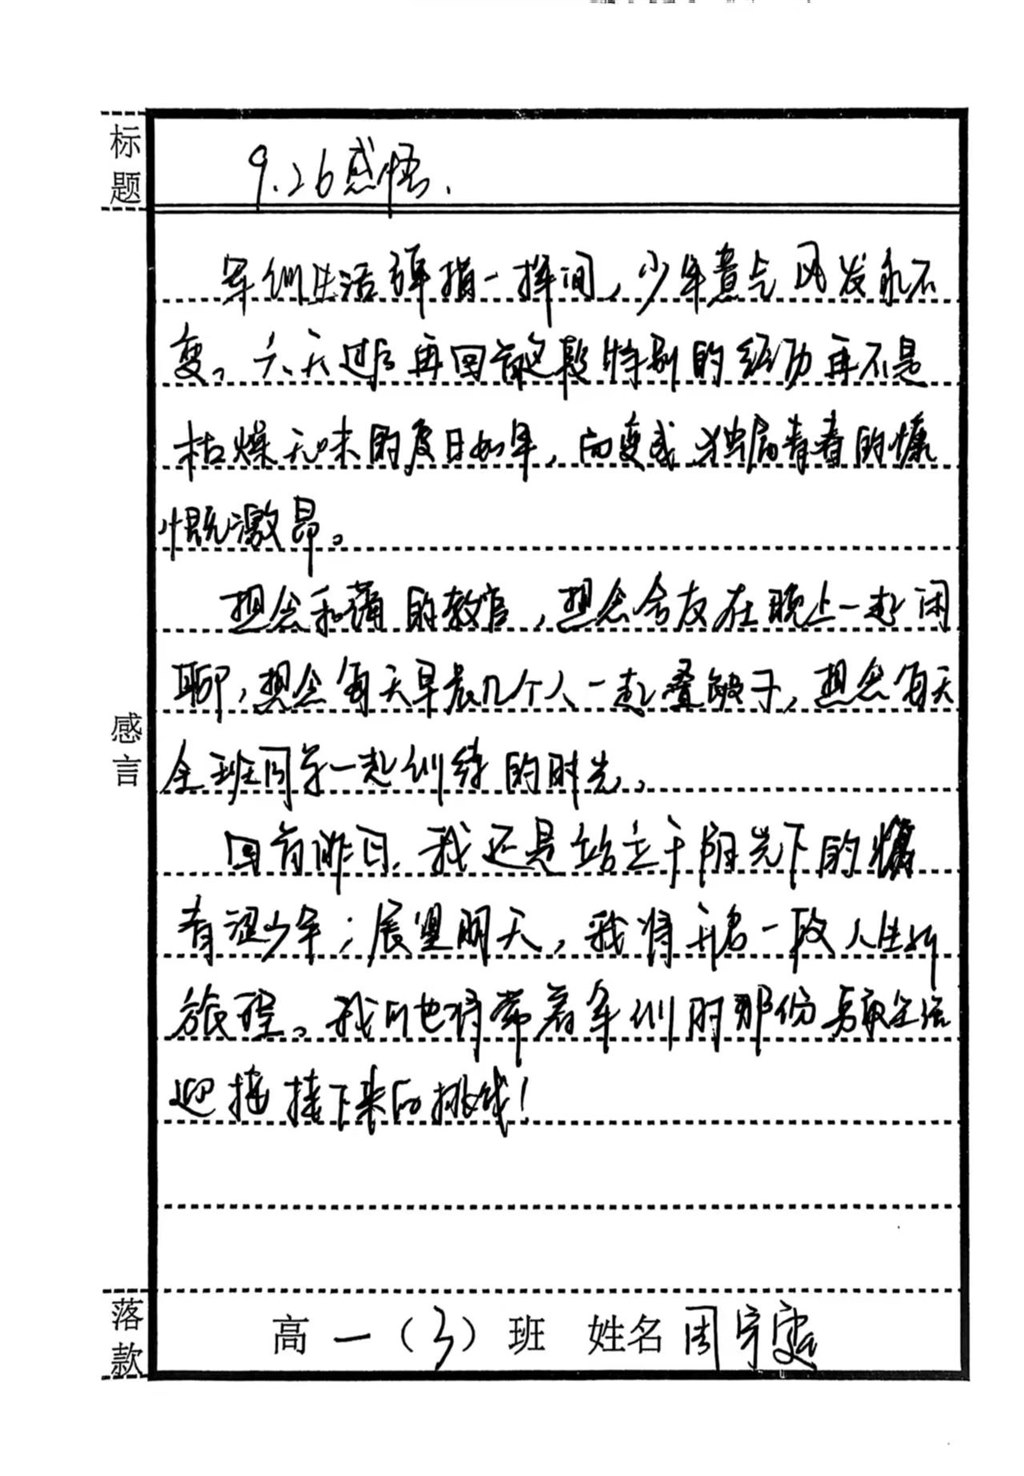 标题
9.26感悟.
军训生活弹指一挥间,少年意气风发永不
变。六天过后再回首这段特别的经历再不是
枯燥无味的度日如年,而变成独属青春的慷
慨激昂。
想念和蔼的教官,想念舍友在晚上一起闲
聊,想念每天早晨几个人一起叠被子,想念每天
全班同学一起训练的时光。
感言
回首昨日,我还是站立于阳光下的
有涩少年;展望明天,我将开启一段人生的
旅程。我们也将带着军训时那份勇敢坚
迎接接下来的挑战!
落款
高一(3)班 姓名 周宇